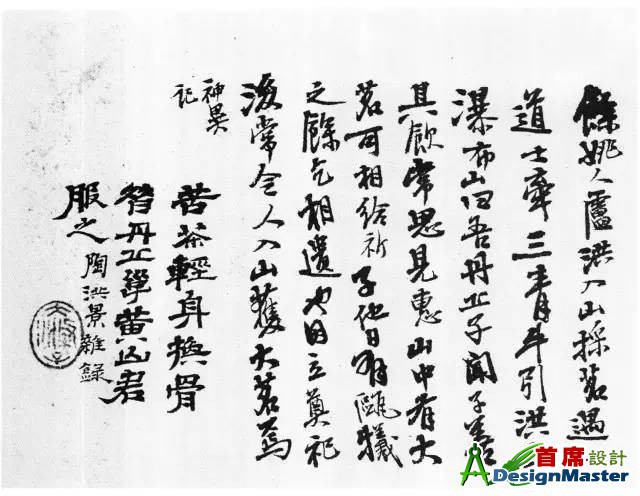 餘姚人盧洪入山採茗遇
道士牽三青牛引洪
瀑布山曰吾丹丘子聞子善
具飲常思見惠山中有大
茗可相給祈子他日有甌犧
之餘乞相遺也因立奠祀
後常令人入山獲大茗焉
神異
記
苦茶輕身換骨
昔丹丘黃山君
服之 陶洪景雜錄
首席設計
DesignMaster